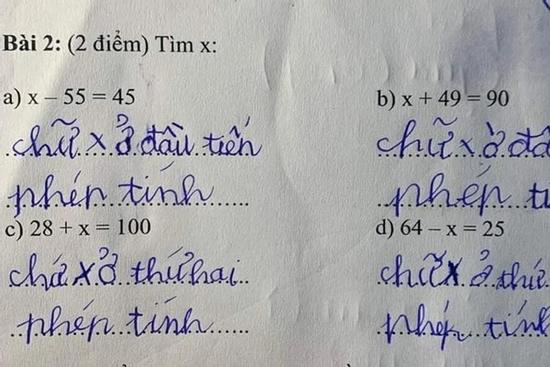 Bài 2: (2 điểm) Tìm x:
a) x – 55 = 45
b) x + 49 = 90
chữ x ở đầu tiên
chữ x ở đầ
phép tính
phép tí
c) 28 + x = 100
d) 64 – x = 25
chữ x ở thứ hai
chữ x ở thứ
phép tính
phép tính